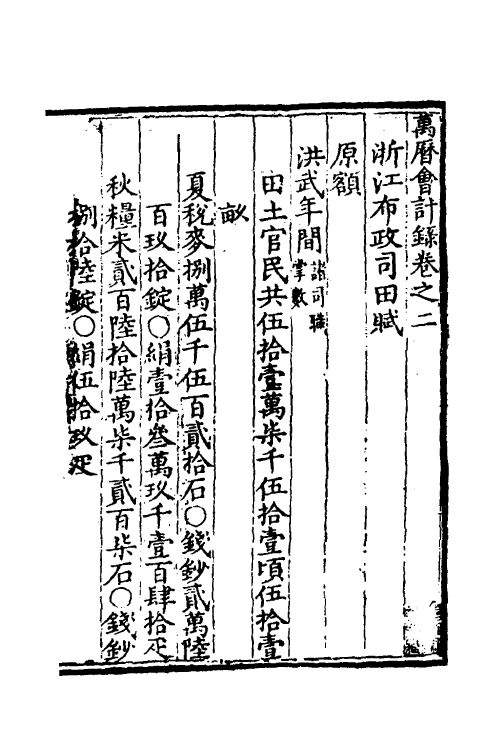 萬曆會計錄卷之二
浙江布政司田賦
原額
洪武年間諸司職掌數
田土官民共伍拾壹萬柒千伍拾壹頃伍拾壹
畝
夏稅麥捌萬伍千伍百貳拾石〇錢鈔貳萬陸
百玖拾錠〇絹壹拾叁萬玖千壹百肆拾疋
秋糧米貳百陸拾陸萬柒千貳百柒石〇錢鈔
捌拾陸錠〇絹伍拾玖疋